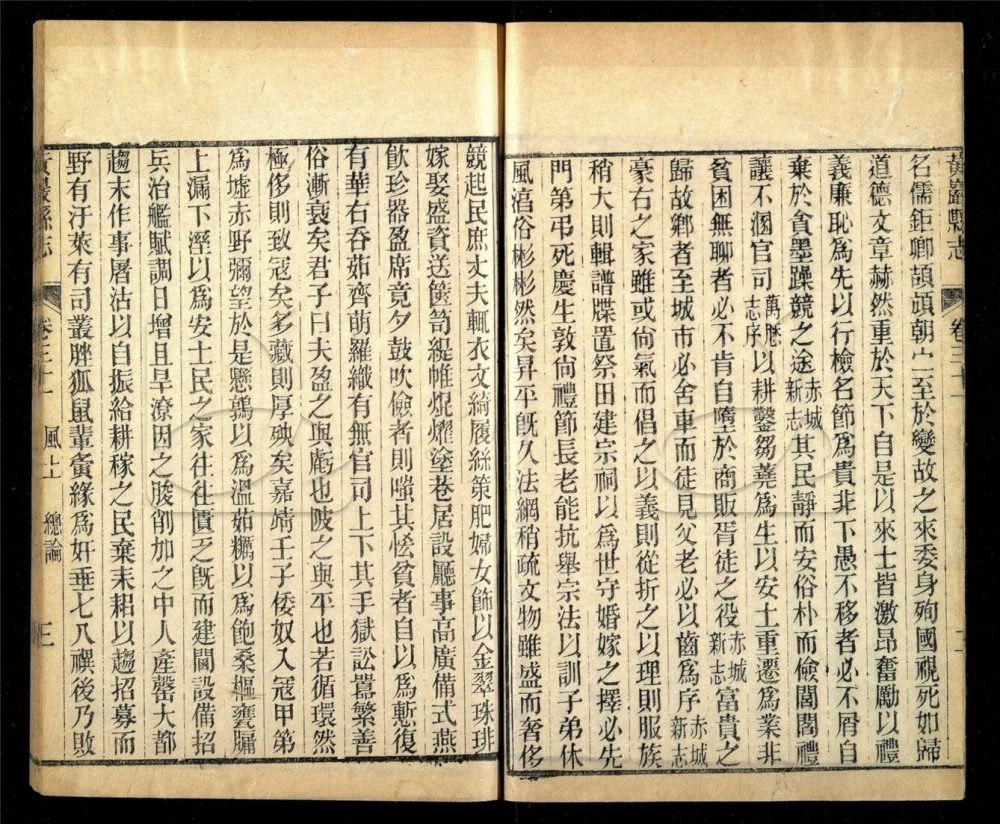 黃巖縣志 卷三十一 二
名儒鉅卿頡頏朝宁至於變故之來委身殉國視死如歸
道德文章赫然重於天下自是以來士皆激昂奮勵以禮
義廉恥爲先以行檢名節爲貴非下愚不移者必不屑自
棄於貪墨躁競之途赤城新志其民靜而安俗朴而儉閭閻禮
讓不溷官司萬曆志序以耕鑿芻蕘爲生以安土重遷爲業非
貧困無聊者必不肯自墮於商販胥徒之役赤城新志富貴之
歸故鄉者至城市必舍車而徒見父老必以齒爲序赤城新志
豪右之家雖或尙氣而倡之以義則從折之以理則服族
稍大則輯譜牒置祭田建宗祠以爲世守婚嫁之擇必先
門第弔死慶生敦尙禮節長老能抗舉宗法以訓子弟休
風淯俗彬彬然矣昇平旣久法網稍疏文物雖盛而奢侈
競起民庶丈夫輒衣文綺履絲策肥婦女飾以金翠珠琲
嫁娶盛資送篋笥緹帷焜燿塗巷居設廳事高廣備式燕
飮珍器盈席竟夕鼓吹儉者則嗤其恡貧者自以爲慙復
有華右吞茹齊萌羅織有無官司上下其手獄訟嚚繁善
俗漸衰矣君子曰夫盈之與虧也陂之與平也若循環然
極侈則致寇矣多藏則厚殃矣嘉靖壬子倭奴入寇甲第
爲墟赤野彌望於是懸鶉以爲溫茹糲以爲飽桑樞甕牖
上漏下溼以爲安士民之家往往匱乏旣而建閫設備招
兵治艦賦調日增且旱潦因之朘削加之中人產罄大都
趨末作事屠沽以自振給耕稼之民棄耒耜以趨招募而
野有汙萊有司叢脞狐鼠輩夤緣爲奸垂七八禩後乃敗
黃巖縣志 卷三十一 風土 總論 三